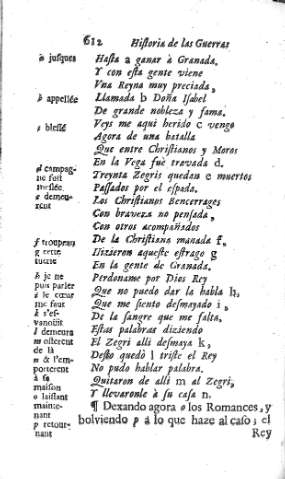 612 Historia de las Guerras
a jusques
Hasta a ganar à Granada.
Y con esta gente viene
Vna Reyna muy preciada,
b appellée
Llamada b Doña Isabel
De grande nobleza y fama.
c blessé
Veys me aqui herido c vengo
Agora de una batalla
Que entre Christianos y Moros
En la Vega fuè travada d.
d campag-
ne fust
meslée.
e demeu-
rent
Treynta Zegris quedan e muertos
Passados por el espada.
Los Christianos Bencerrages
Con braveza no pensada,
Con otros acompañados
f troupeau
De la Christiana manada f,
g cette
tuerie
Hizieron aqueste estrago g
En la gente de Granada.
h je ne
puis parler
Perdoname por Dios Rey
Que no puedo dar la habla h,
i le cœur
me faut
Que me siento desmayado i,
De la sangre que me falta.
k s'es-
vanoüit
Estas palabras diziendo
El Zegri alli desmaya k,
l demeura
Desto quedò l triste el Rey
No pudo hablar palabra.
m osterent
de là
Quitaron de alli m al Zegri,
n & l'em-
porterent
à sa
maison
Y llevaronle à su casa n.
o laissant
mainte-
nant
¶ Dexando agora o los Romances, y
p retour-
nant
bolviendo p à lo que haze al caso; el
Rey